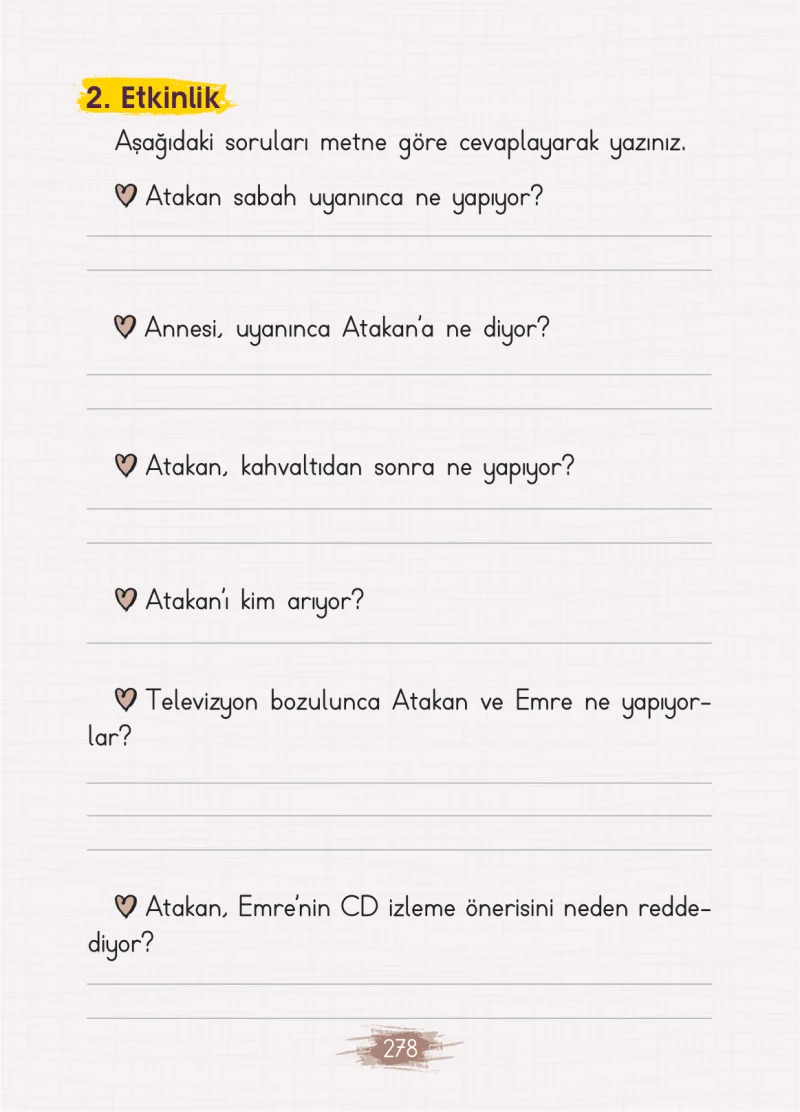 2. Etkinlik
Aşağıdaki soruları metne göre cevaplayarak yazınız.
Atakan sabah uyanınca ne yapıyor?
Annesi, uyanınca Atakan'a ne diyor?
Atakan, kahvaltıdan sonra ne yapıyor?
Atakan'ı kim arıyor?
Televizyon bozulunca Atakan ve Emre ne yapıyor-
lar?
Atakan, Emre'nin CD izleme önerisini neden redde-
diyor?
278